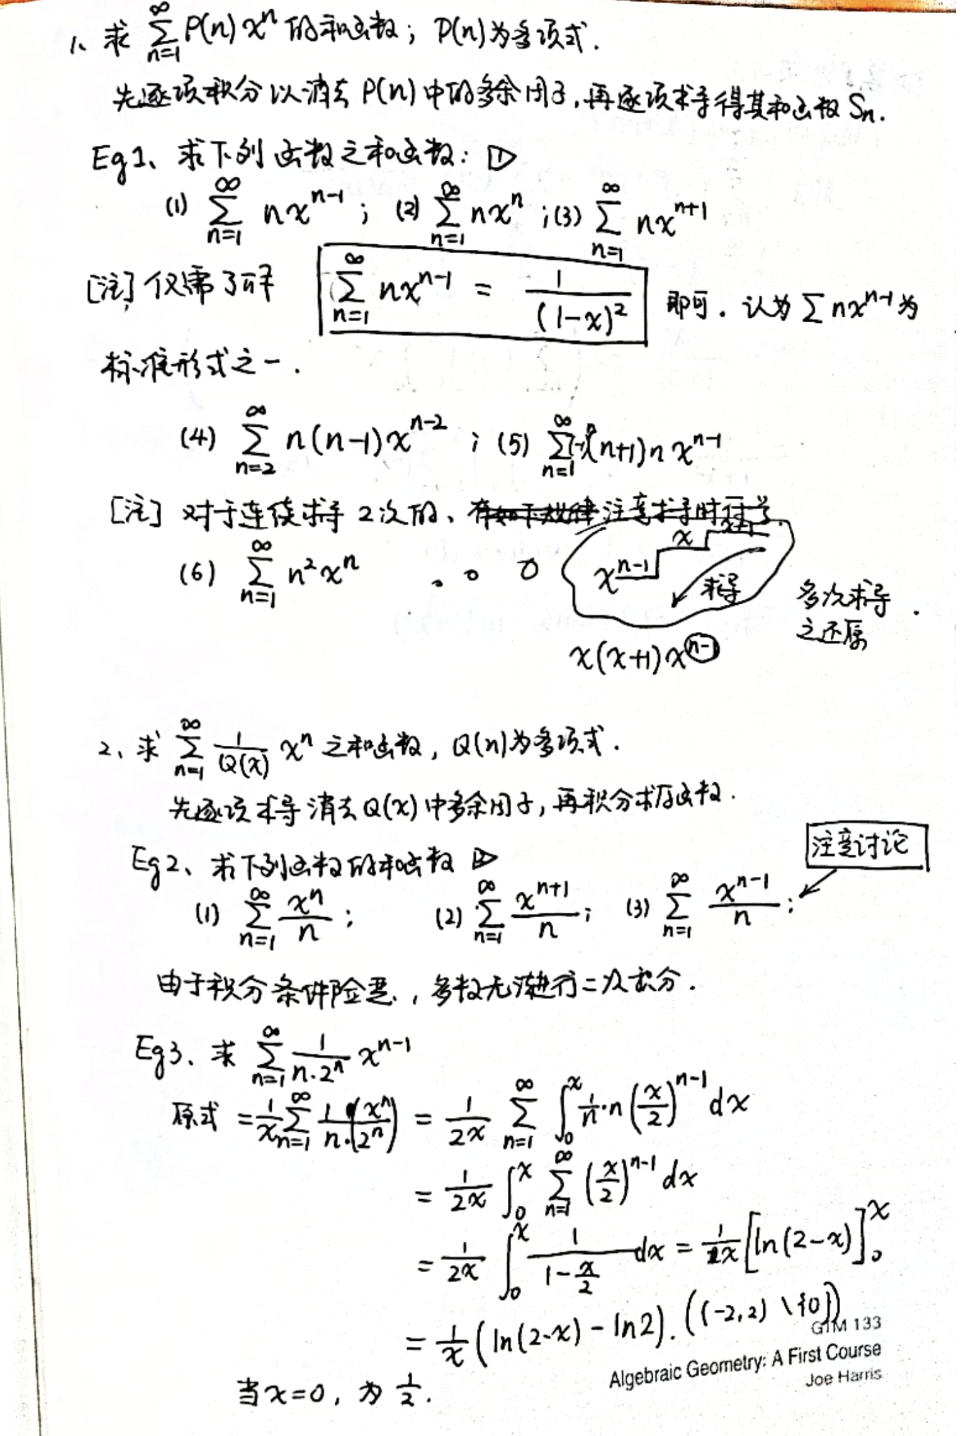 1、求 ∑_{n=1}^{∞} P(n) x^n 的和函数；P(n)为多项式.
先逐项积分以消去 P(n) 中的多余因子,再逐项求导得其和函数 Sn.
Eg1、求下列函数之和函数: ▷
(1) ∑_{n=1}^{∞} nx^{n-1}; (2) ∑_{n=1}^{∞} nx^n; (3) ∑_{n=1}^{∞} nx^{n+1}
[注] 仅需了解 ∑_{n=1}^{∞} nx^{n-1} = 1/(1-x)^2 即可. 认为 ∑nx^{n-1} 为
标准形式之一.
(4) ∑_{n=2}^{∞} n(n-1)x^{n-2}; (5) ∑_{n=1}^{∞} (n+1)n x^{n-1}
[注] 对于连续求导2次的、注意求导时符号.
(6) ∑_{n=1}^{∞} n^2 x^n
x^{n-1} x
求导
多次求导.
之还原
x(x+1)x^{n-1}
2、求 ∑_{n=1}^{∞} 1/Q(x) x^n 之和函数, Q(n)为多项式.
先逐项求导消去Q(x)中多余因子,再积分求原函数.
注意讨论
Eg2、求下列函数的和函数 ▷
(1) ∑_{n=1}^{∞} x^n/n; (2) ∑_{n=1}^{∞} x^{n+1}/n; (3) ∑_{n=1}^{∞} x^{n-1}/n;
由于积分条件险恶, 多数无法进行二次积分.
Eg3、求 ∑_{n=1}^{∞} 1/(n·2^n) x^{n-1}
原式 = 1/x ∑_{n=1}^{∞} 1/n·(x^n/2^n) = 1/(2x) ∑_{n=1}^{∞} ∫_0^x 1/n·n (x/2)^{n-1} dx
= 1/(2x) ∫_0^x ∑_{n=1}^{∞} (x/2)^{n-1} dx
= 1/(2x) ∫_0^x 1/(1-x/2) dx = 1/x [ln(2-x)]_0^x
= 1/x (ln(2-x) - ln2). ((-2,2) \ {0})
当x=0, 为 1/2.
GTM 133
Algebraic Geometry: A First Course
Joe Harris